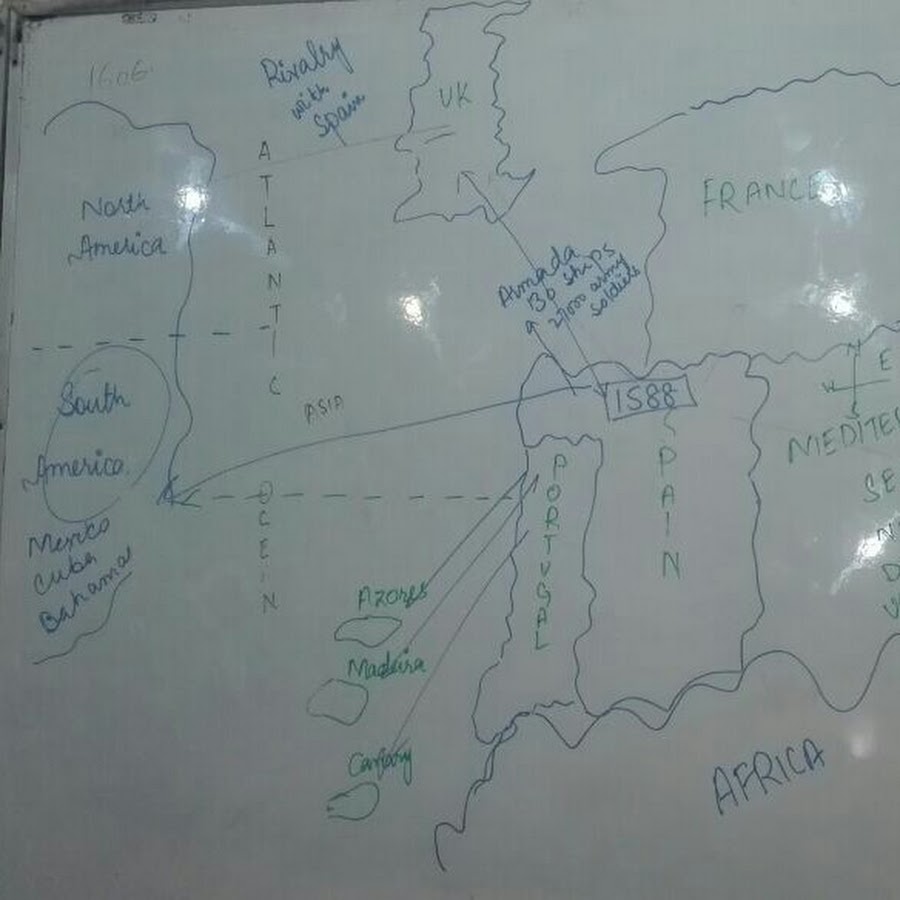 1606
Rivalry
with
Spain
UK
North
America
ATLANTIC
FRANCE
Armada
130 ships
21000 army
soldiers
N
W
E
1588
South
America
ASIA
MEDITER
SE
SPAIN
PORTUGAL
OCEIN
Mexico
Cuba
Bahama
Azores
Madeira
Canary
AFRICA